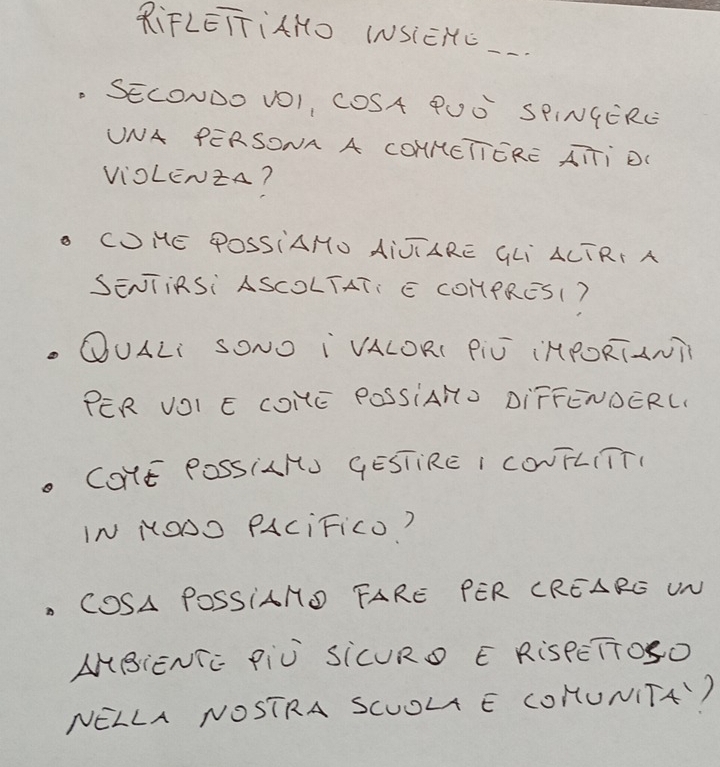 RIFLETTIAMO INSIEME ....
• SECONDO VOI, COSA PUÒ SPINGERE
UNA PERSONA A COMMETTERE ATTI DI
VIOLENZA?
• COME POSSIAMO AIUTARE GLI ALTRI A
SENTIRSI ASCOLTATI E COMPRESI?
• QUALI SONO I VALORI PIÙ IMPORTANTI
PER VOI E COME POSSIAMO DIFFENDERLI
• COME POSSIAMO GESTIRE I CONFLITTI
IN MODO PACIFICO?
• COSA POSSIAMO FARE PER CREARE UN
AMBIENTE PIÙ SICURO E RISPETTOSO
NELLA NOSTRA SCUOLA E COMUNITA'?